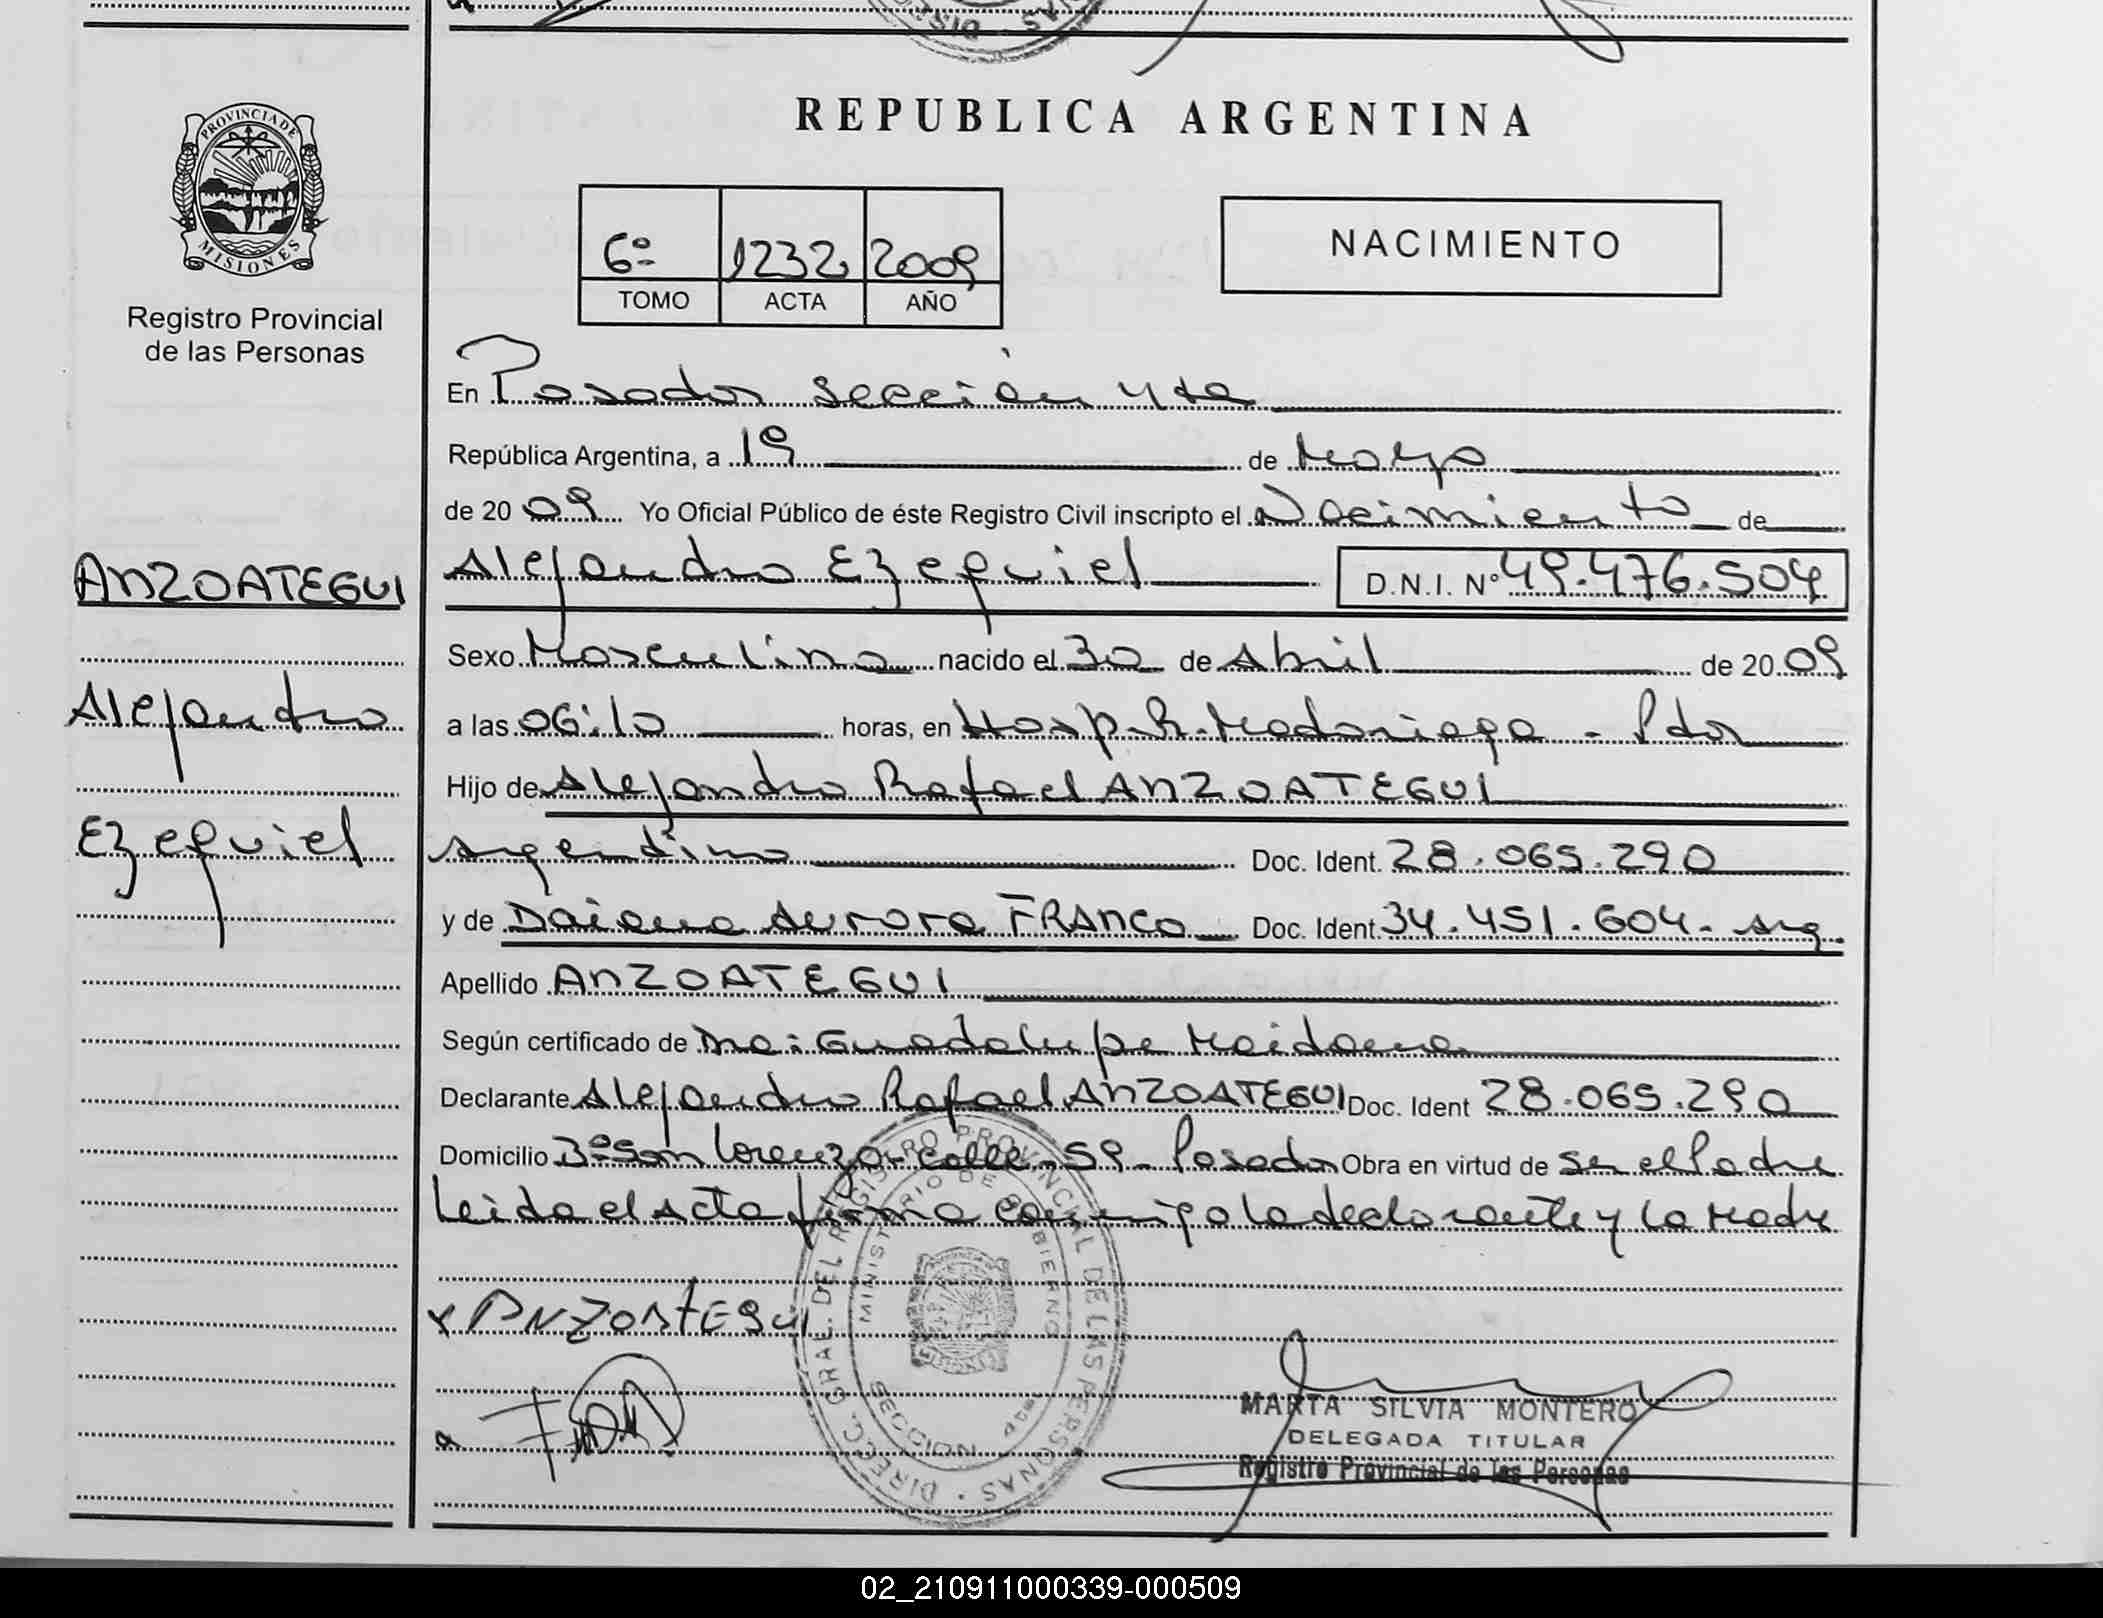 REPUBLICA ARGENTINA
PROVINCIA DE MISIONES
Registro Provincial
de las Personas
6º 1232 2009
TOMO ACTA AÑO
NACIMIENTO
En Posadas sección 4ta
República Argentina, a 19 de Mayo
de 20 09 Yo Oficial Público de éste Registro Civil inscripto el Nacimiento de
ANZOATEGUI
Alejandro
Ezequiel
Alejandro Ezequiel D.N.I. Nº 49.476.504
Sexo Masculino nacido el 30 de Abril de 20 09
a las 06:10 horas, en Hosp. R. Madariaga - Pdas
Hijo de Alejandro Rafael ANZOATEGUI
Argentino Doc. Ident. 28.065.290
y de Daiana Aurora FRANCO Doc. Ident. 34.451.604 - Arg.
Apellido ANZOATEGUI
Según certificado de Dra: Guadalupe Maidana
Declarante Alejandro Rafael ANZOATEGUI Doc. Ident 28.065.290
Domicilio Bº San Lorenzo - Calle - 59 - Posadas Obra en virtud de Ser el Padre
Leida el Acta firma conmigo la declarante y la Madre
x ANZOATEGUI
DIRECC. GRAL. DEL REGISTRO PROVINCIAL DE LAS PERSONAS
MINISTERIO DE GOBIERNO
SECCION 4ta
MARTA SILVIA MONTERO
DELEGADA TITULAR
Registro Provincial de las Personas
02_210911000339-000509